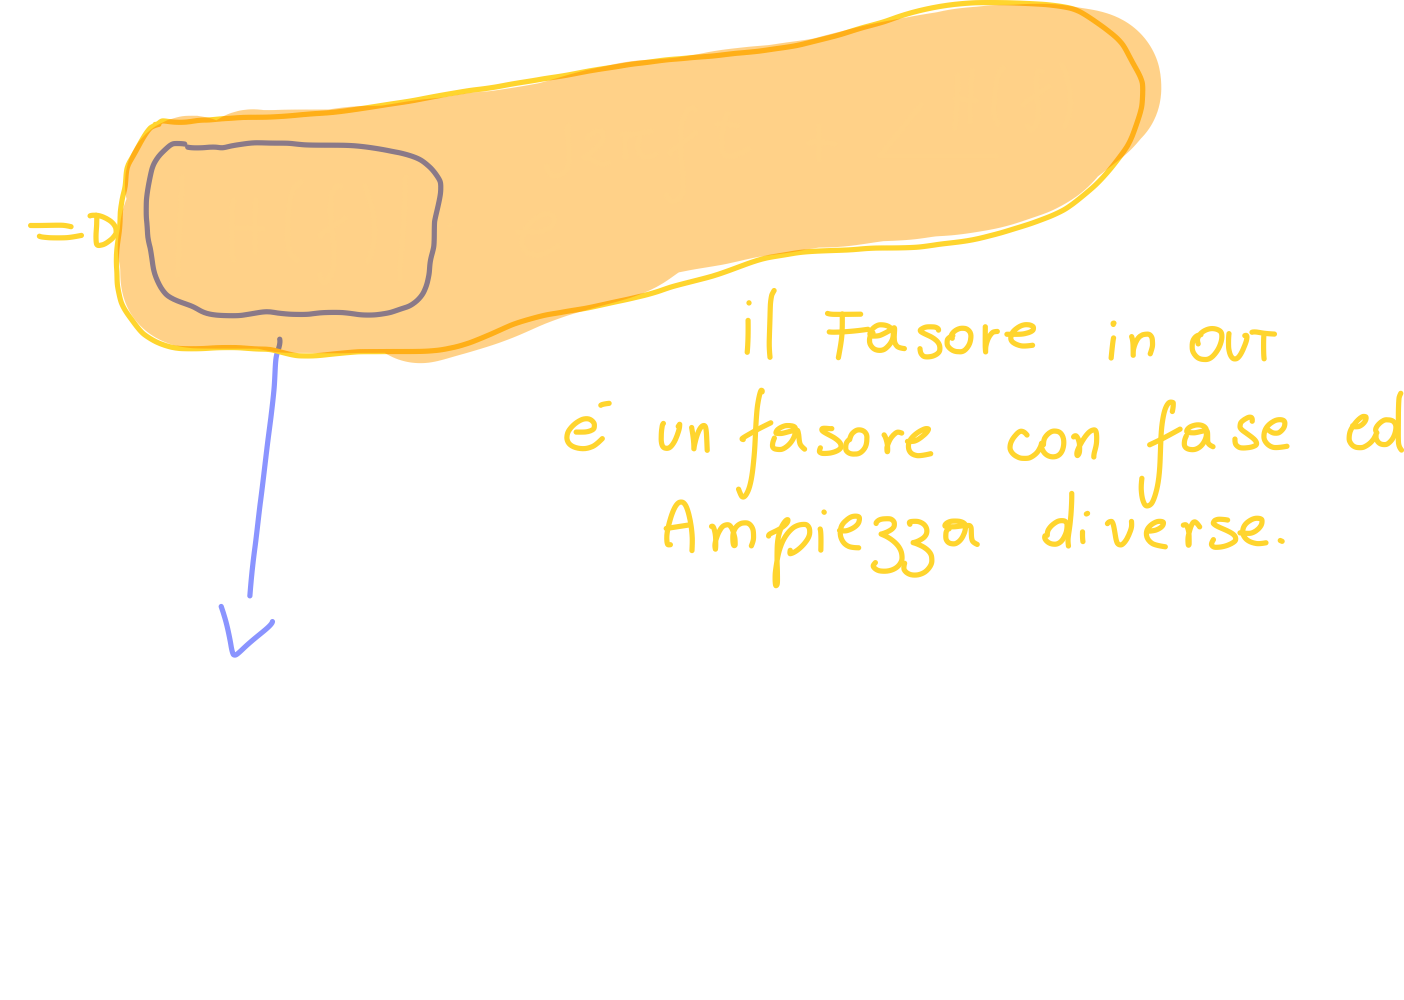 =D
il Fasore in OUT
é un fasore con fase ed
Ampiezza diverse.